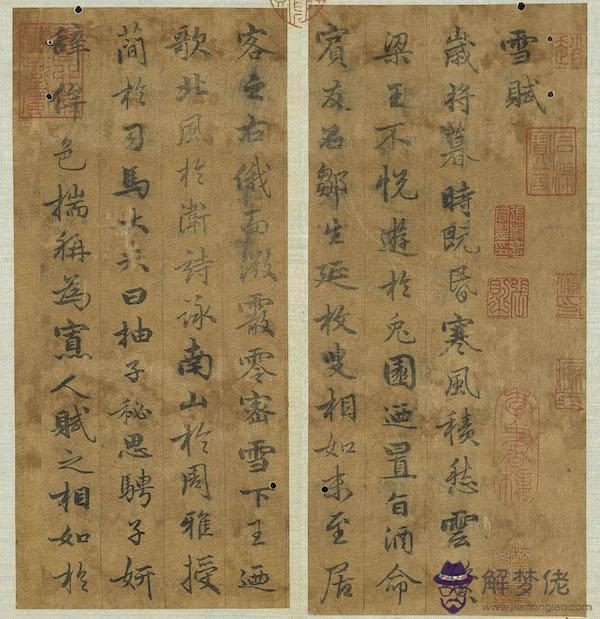 雪賦
歲將暮時既昏寒風積愁雲繁
梁王不悅遊於兔園迺置旨酒命
賓友召鄒生延枚叟相如末至居
客之右俄而微霰零密雪下王迺
歌北風於衛詩詠南山於周雅授
簡於司馬大夫曰抽子秘思騁子妍
辭侔色揣稱為寡人賦之相如於
解梦佬
www.jiemenglao.com